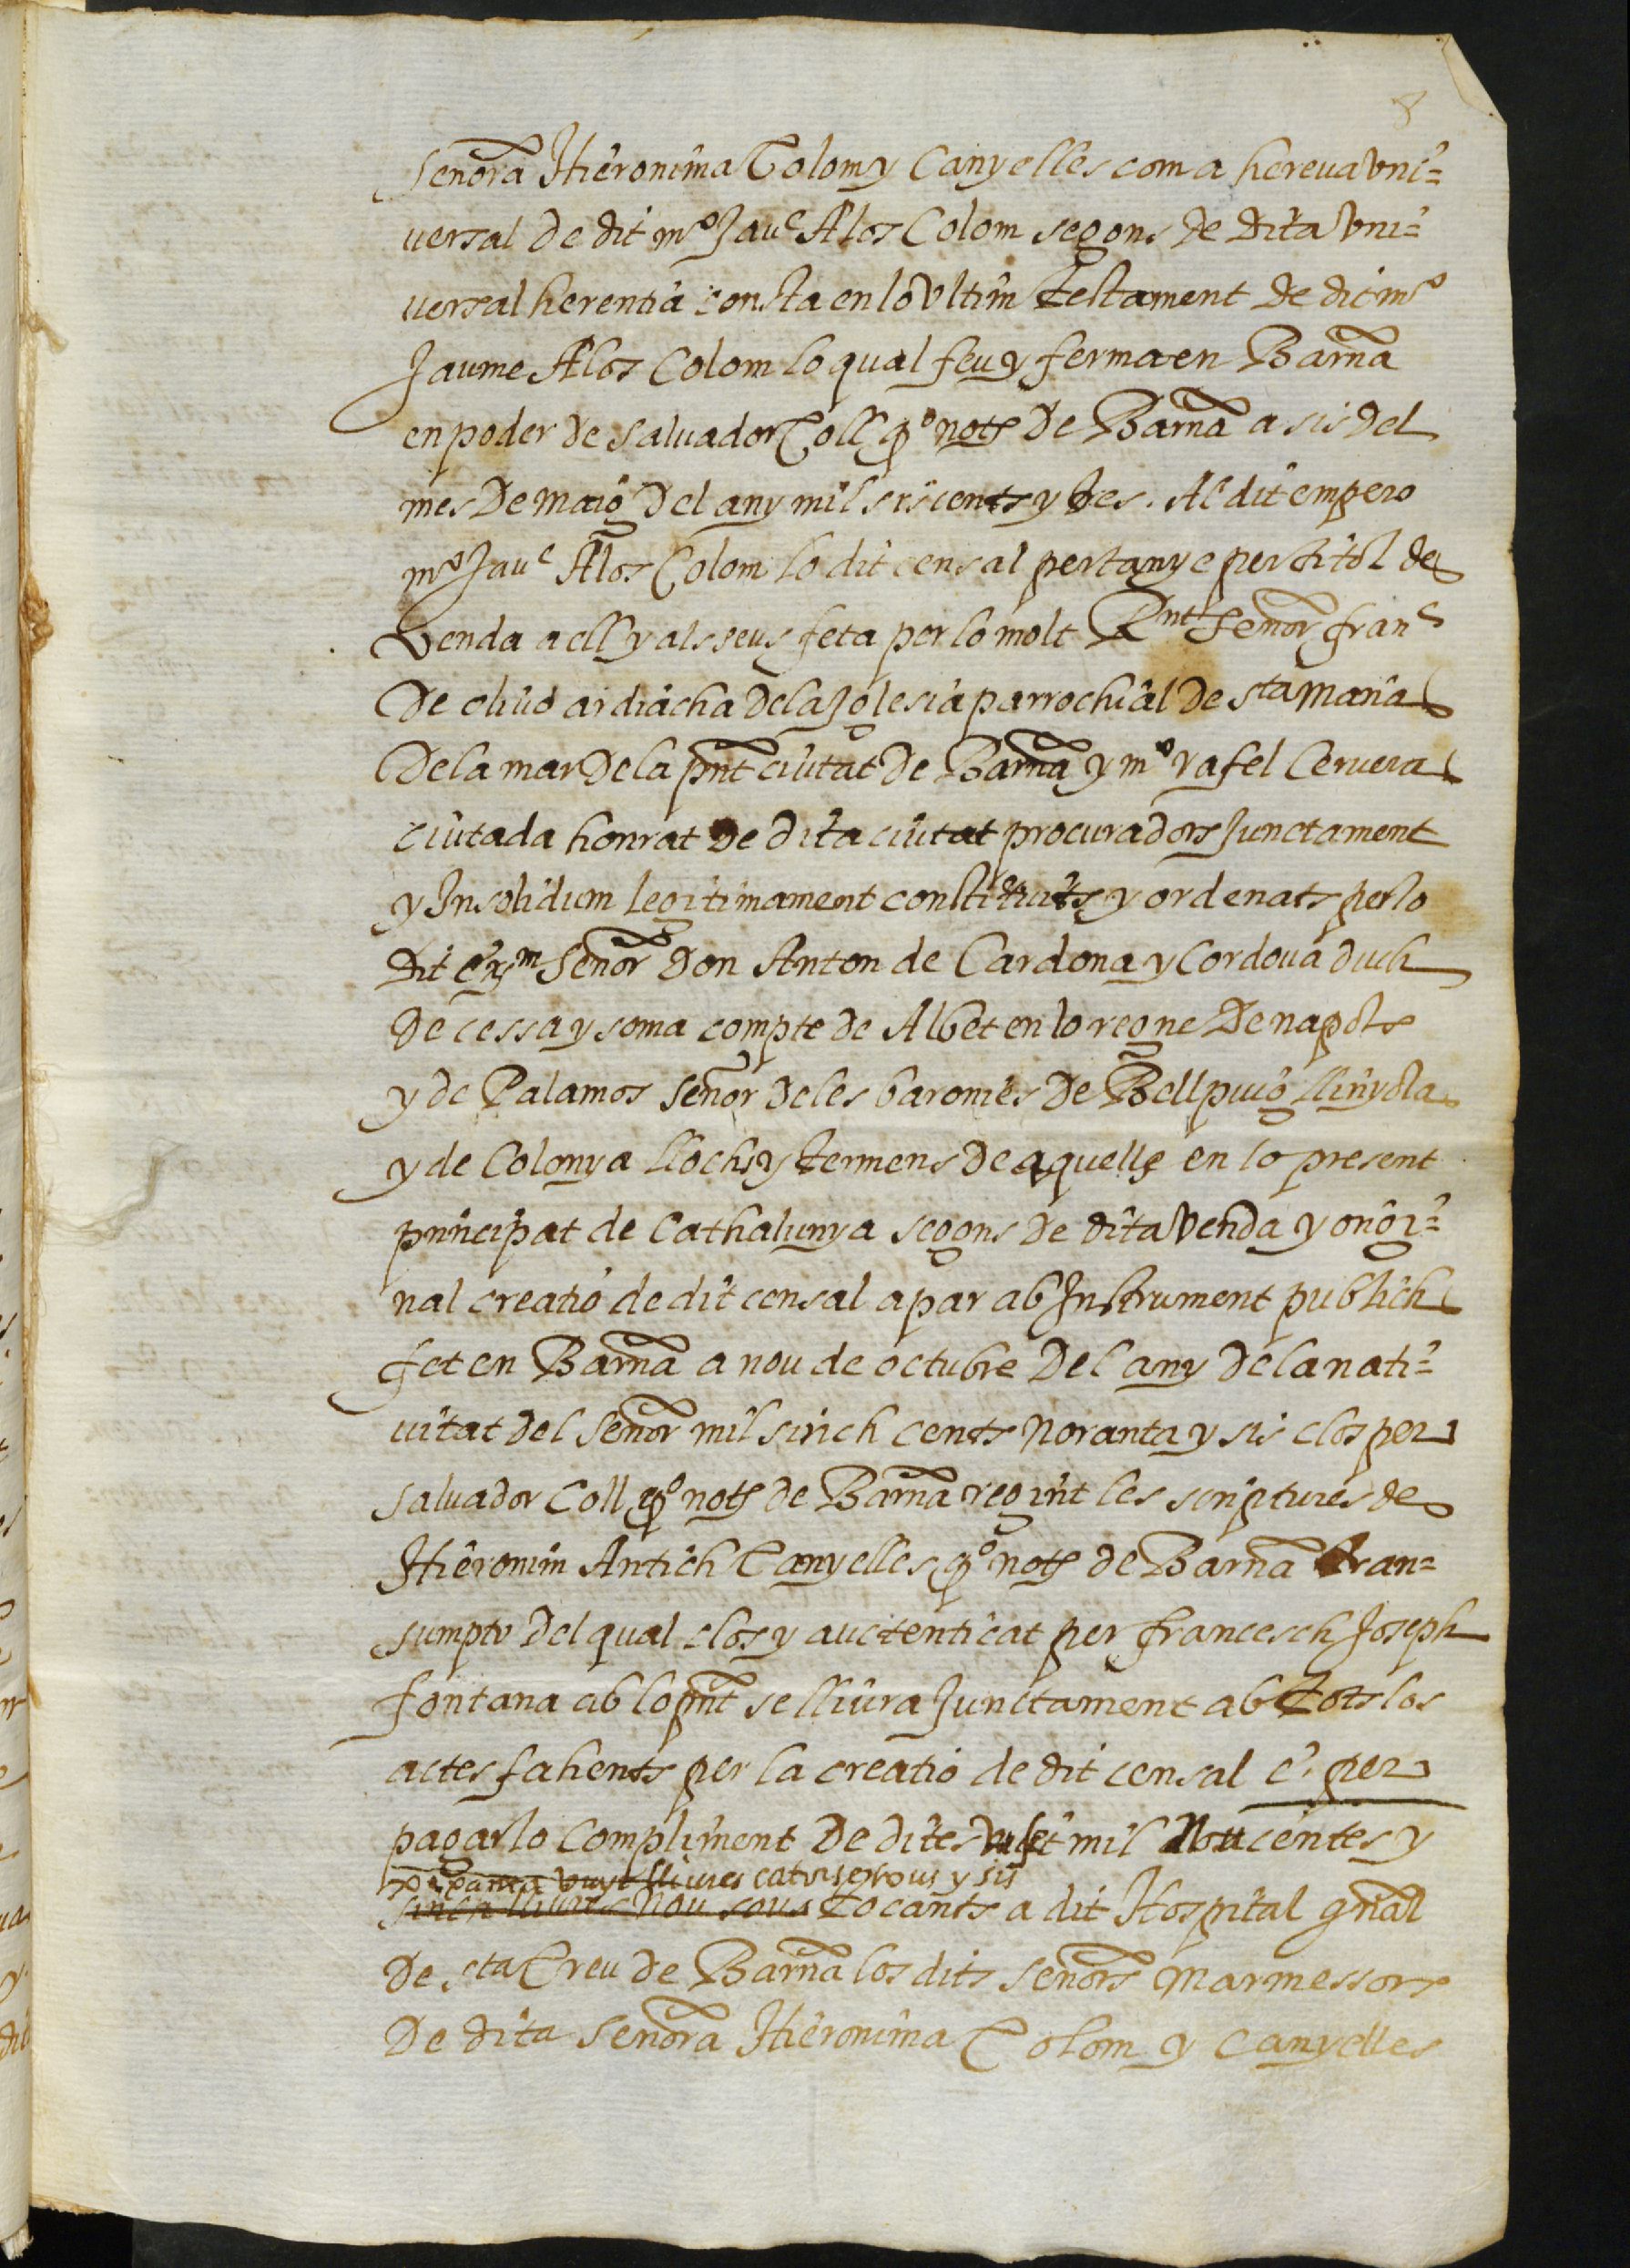 8
señora Hieronima Colom y Canyelles com a hereua vni=
uersal de dit mº Jauᵉ Alos Colom segons de dita vni=
uersal herentia consta en lo vltim testament de dit mº
Jaume Alos Colom lo qual feu y ferma en Barna
en poder de saluador Coll qº notʳ de Barna a sis del
mes de maig del any mil siscents y tres. Al dit empero
mº Jauᵉ Alos Colom lo dit censal pertanye per titol de
venda a ell y als seus feta per lo molt Rnt señor franᶜ
de oliuo ardiacha de la Iglesia parrochial de sta Maria
de la mar de la pnt ciutat de Barna y mº rafel Ceruera
ciutada honrat de dita ciutat procuradors Junctament
y Insolidum legitimament constituits y ordenats per lo
dit exm señor Don Anton de Cardona y Cordoua duch
de cessa y soma compte de Albet en lo regne de napols
y de Palamos señor de les baronies de Bellpuig llinyola
y de Colonya llochs y termens de aquelles en lo present
principat de Cathalunya segons de dita venda y origi=
nal creatio de dit censal apar ab Instrument publich
fet en Barna a nou de octubre del any de la nati=
uitat del señor mil sinch cents noranta y sis clos per
saluador Coll qº notʳ de Barna regint les scriptures de
Hieronim Antich Canyelles qº notʳ de Barna tran=
sumpto del qual clos y auctenticat per francesch Joseph
fontana ab lo pnt se lliura Junctament ab tots los
actes fahents per la creatio de dit censal e per
pagar lo compliment de dites set mil noucentes y
vuyt lliures catorse sous y sis
sinch lliures nou sous tocants a dit Hospital gnal
de sta Creu de Barna los dits señors marmessors
de dita señora Hieronima Colom y Canyelles